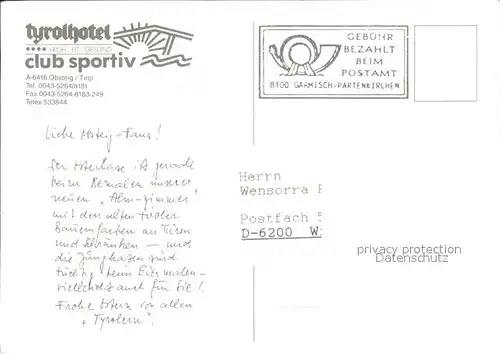 tyrolhotel
FROH FIT GESUND
club sportiv
A-6416 Obsteig / Tirol
Tel. 0043-5264/8181
Fax 0043-5264-8183-249
Telex 533844
GEBÜHR
BEZAHLT
BEIM
POSTAMT
8100 GARMISCH-PARTENKIRCHEN
Liebe Obsteig-Fans!
Der Osterhase ist gerade
beim Bemalen unserer
neuen "Alm-zimmer"
mit den alten Tiroler
Bauernfarben an Türen
und Schränken – und
die Junghasen sind
tüchtig beim Eier malen –
vielleicht auch für Sie!
Frohe Ostern von allen
"Tyrolern".
Herrn
Wensorra
Postfach 5
D-6200 W
privacy protection
Datenschutz